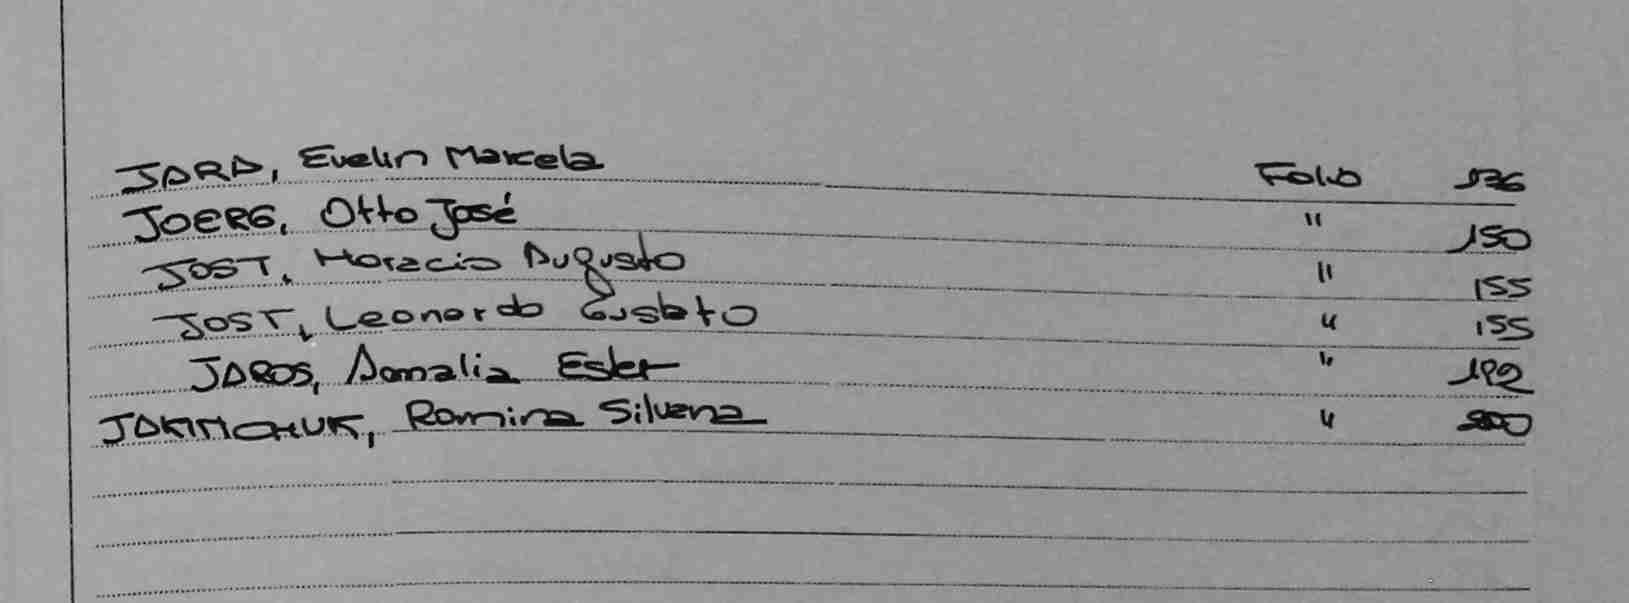 JARA, Evelin Marcela Folio 136
JOERG, Otto José " 150
JOST, Horacio Augusto " 155
JOST, Leonardo Gustavo " 155
JAROS, Amalia Ester " 192
JAKIMCHUK, Romina Silvana " 200